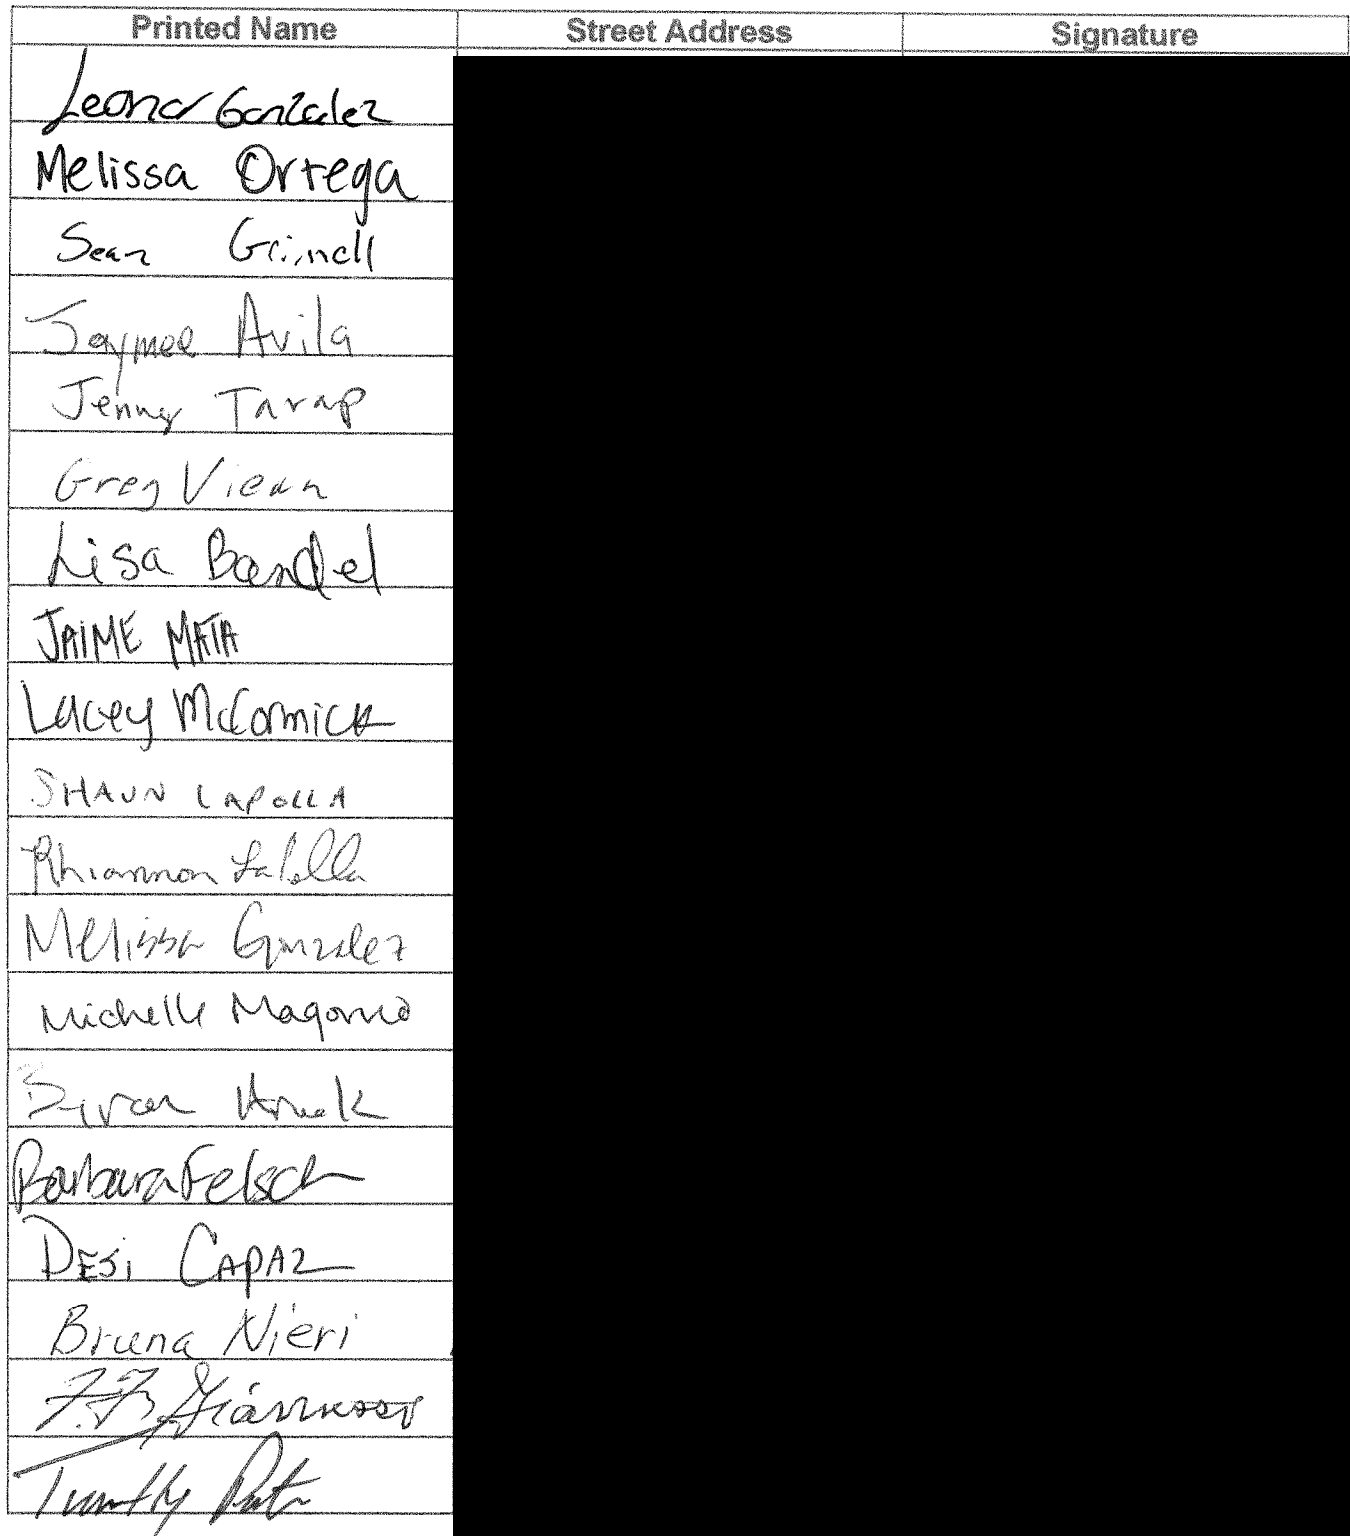 Printed Name Street Address Signature
Leonor Gonzalez
Melissa Ortega
Sean Grinnell
Jaymee Avila
Jenny Tarap
Greg Viean
Lisa Bandel
JAIME MATA
Lacey McCormick
SHAUN LAPOLLA
Rhiannon LaPolla
Melissa Gonzalez
Michelle
Barbara Felsch
DESi CAPAZ
Bruna Nieri